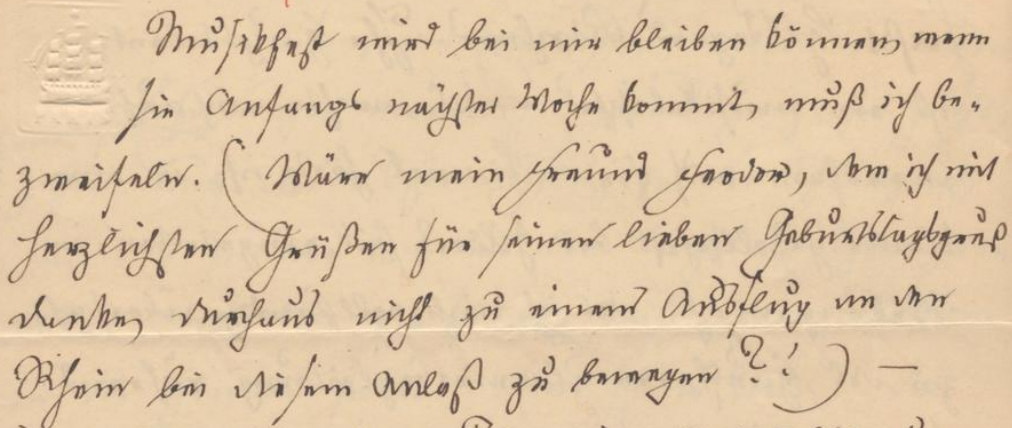 Musikfest wird bei mir bleiben können, wenn
sie Anfangs nächster Woche kommt, muß ich be-
zweifeln. (Wäre mein Freund Feodor, dem ich mit
herzlichsten Grüßen für seinen lieben Geburtstagsgruß
danke, durchaus nicht zu einem Ausflug an den
Rhein bei diesem Anlaß zu bewegen?!) —